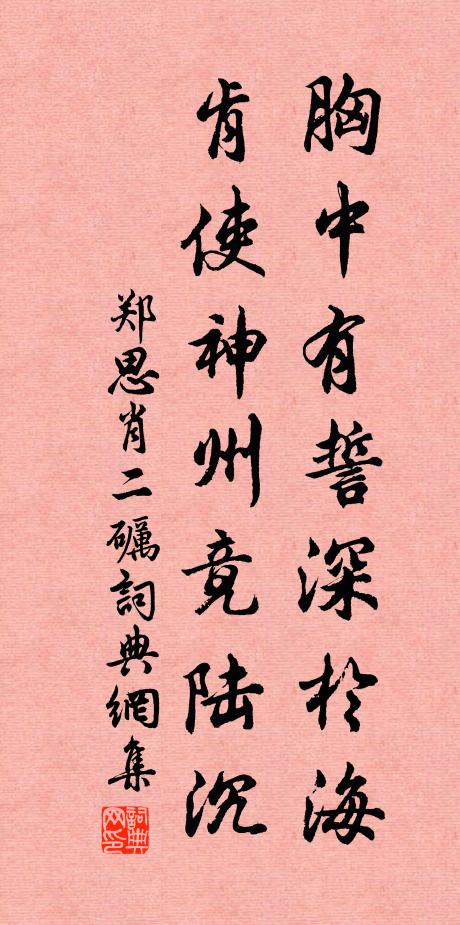 胸中有誓深於海
肯使神州竟陆沉
郑思肖二礪詞典網集
詞典網印